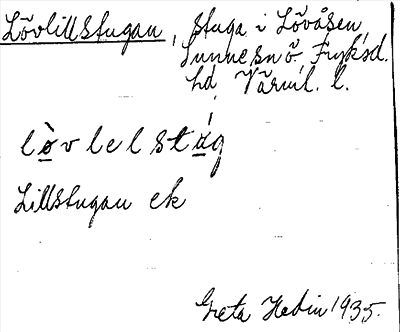 Lövlillstugan, stuga i Lövåsen,
Sunne sn o. Fryksd.
hd, Värml. l.
lòvlelstúg
Lillstugan ek
Greta Hedin 1935.